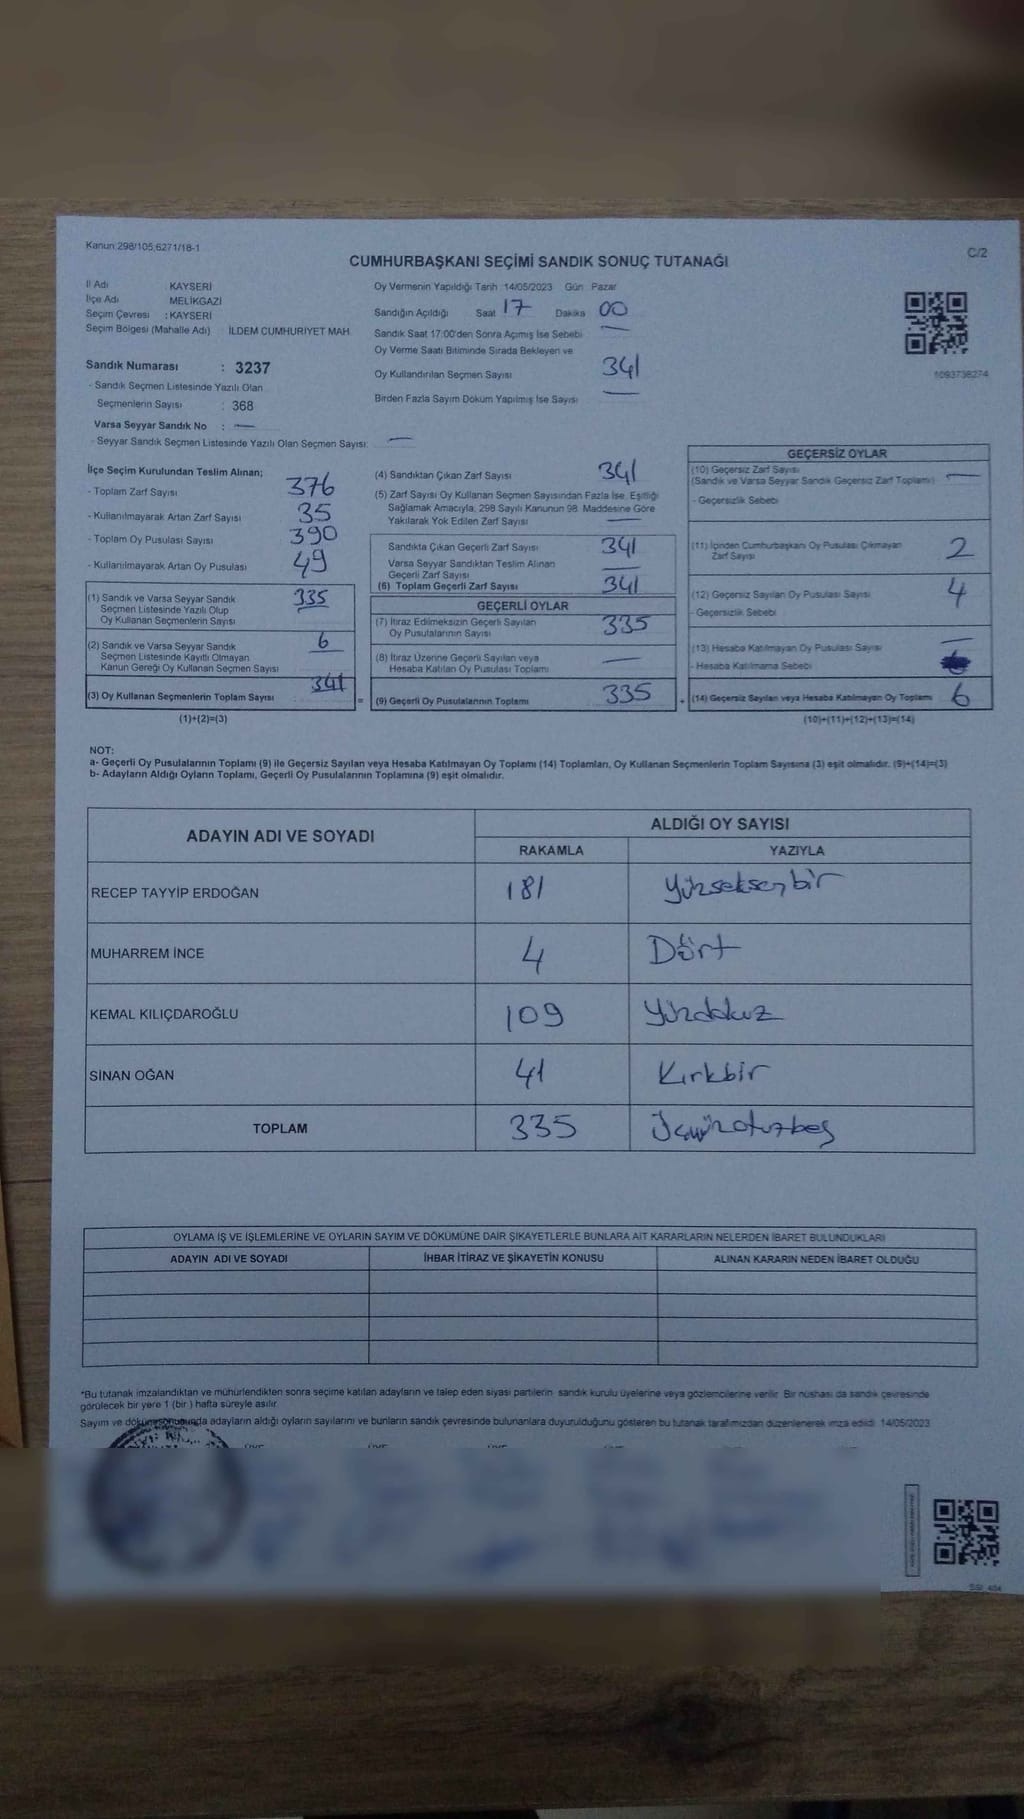 Kanun:298/105,6271/18-1
C/2
CUMHURBAŞKANI SEÇİMİ SANDIK SONUÇ TUTANAĞI
İl Adı KAYSERİ
İlçe Adı MELİKGAZİ
Seçim Çevresi : KAYSERİ
Seçim Bölgesi (Mahalle Adı) İLDEM CUMHURİYET MAH.
Oy Vermenin Yapıldığı Tarih :14/05/2023 Gün Pazar
Sandığın Açıldığı Saat 17 Dakika 00
Sandık Saat 17:00'den Sonra Açımış İse Sebebi —
Oy Verme Saati Bitiminde Sırada Bekleyen ve
Oy Kullandırılan Seçmen Sayısı 341
Birden Fazla Sayım Döküm Yapılmış İse Sayısı —
1093738274
Sandık Numarası : 3237
- Sandık Seçmen Listesinde Yazılı Olan
Seçmenlerin Sayısı : 368
Varsa Seyyar Sandık No : —
- Seyyar Sandık Seçmen Listesinde Yazılı Olan Seçmen Sayısı: —
İlçe Seçim Kurulundan Teslim Alınan;
- Toplam Zarf Sayısı 376
- Kullanılmayarak Artan Zarf Sayısı 35
- Toplam Oy Pusulası Sayısı 390
- Kullanılmayarak Artan Oy Pusulası 49
(1) Sandık ve Varsa Seyyar Sandık 335
Seçmen Listesinde Yazılı Olup
Oy Kullanan Seçmenlerin Sayısı
(2) Sandık ve Varsa Seyyar Sandık 6
Seçmen Listesinde Kayıtlı Olmayan
Kanun Gereği Oy Kullanan Seçmen Sayısı
(3) Oy Kullanan Seçmenlerin Toplam Sayısı 341
(1)+(2)=(3)
(4) Sandıktan Çıkan Zarf Sayısı 341
(5) Zarf Sayısı Oy Kullanan Seçmen Sayısından Fazla İse, Eşitliği
Sağlamak Amacıyla, 298 Sayılı Kanunun 98. Maddesine Göre
Yakılarak Yok Edilen Zarf Sayısı —
Sandıkta Çıkan Geçerli Zarf Sayısı 341
Varsa Seyyar Sandıktan Teslim Alınan
Geçerli Zarf Sayısı —
(6) Toplam Geçerli Zarf Sayısı 341
GEÇERLİ OYLAR
(7) İtiraz Edilmeksizin Geçerli Sayılan 335
Oy Pusulalarının Sayısı
(8) İtiraz Üzerine Geçerli Sayılan veya —
Hesaba Katılan Oy Pusulası Toplamı
= (9) Geçerli Oy Pusulalarının Toplamı 335
GEÇERSİZ OYLAR
(10) Geçersiz Zarf Sayısı —
(Sandık ve Varsa Seyyar Sandık Geçersiz Zarf Toplamı)
- Geçersizlik Sebebi
(11) İçinden Cumhurbaşkanı Oy Pusulası Çıkmayan 2
Zarf Sayısı
(12) Geçersiz Sayılan Oy Pusulası Sayısı 4
- Geçersizlik Sebebi
(13) Hesaba Katılmayan Oy Pusulası Sayısı —
- Hesaba Katılmama Sebebi
+ (14) Geçersiz Sayılan veya Hesaba Katılmayan Oy Toplamı 6
(10)+(11)+(12)+(13)=(14)
NOT:
a- Geçerli Oy Pusulalarının Toplamı (9) ile Geçersiz Sayılan veya Hesaba Katılmayan Oy Toplamı (14) Toplamları, Oy Kullanan Seçmenlerin Toplam Sayısına (3) eşit olmalıdır. (9)+(14)=(3)
b- Adayların Aldığı Oyların Toplamı, Geçerli Oy Pusulalarının Toplamına (9) eşit olmalıdır.
ADAYIN ADI VE SOYADI ALDIĞI OY SAYISI
RAKAMLA YAZIYLA
RECEP TAYYİP ERDOĞAN 181 Yüzseksenbir
MUHARREM İNCE 4 Dört
KEMAL KILIÇDAROĞLU 109 Yüzdokuz
SİNAN OĞAN 41 Kırkbir
TOPLAM 335 Üçyüzotuzbeş
OYLAMA İŞ VE İŞLEMLERİNE VE OYLARIN SAYIM VE DÖKÜMÜNE DAİR ŞİKAYETLERLE BUNLARA AİT KARARLARIN NELERDEN İBARET BULUNDUKLARI
ADAYIN ADI VE SOYADI İHBAR İTİRAZ VE ŞİKAYETİN KONUSU ALINAN KARARIN NEDEN İBARET OLDUĞU
*Bu tutanak imzalandıktan ve mühürlendikten sonra seçime katılan adayların ve talep eden siyasi partilerin sandık kurulu üyelerine veya gözlemcilerine verilir. Bir nüshası da sandık çevresinde
görülecek bir yere 1 (bir ) hafta süreyle asılır.
Sayım ve döküm sonucunda adayların aldığı oyların sayılarını ve bunların sandık çevresinde bulunanlara duyurulduğunu gösteren bu tutanak tarafımızdan düzenlenerek imza edildi. 14/05/2023